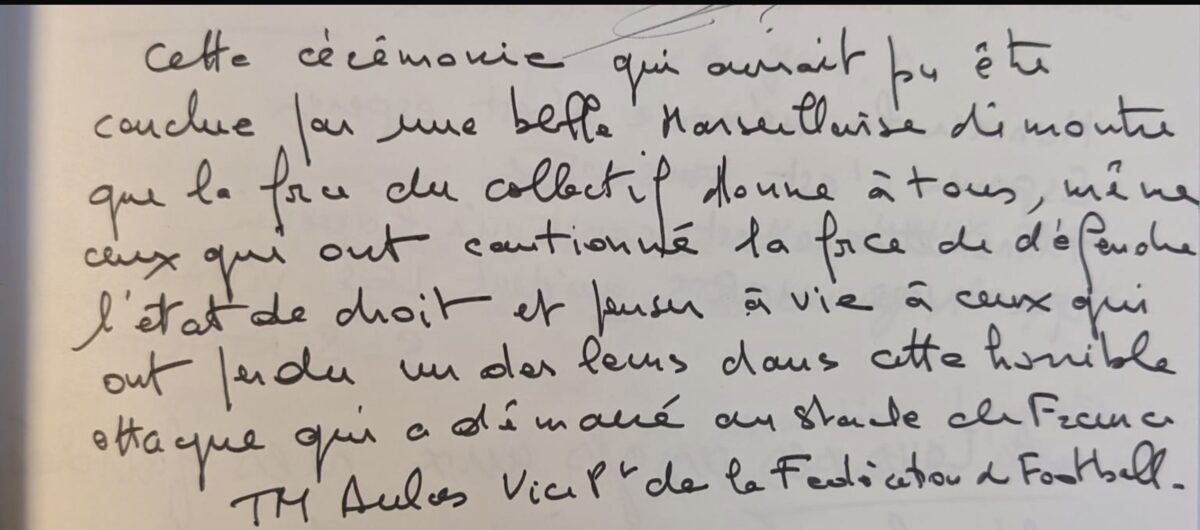 Cette cérémonie qui aurait pu être
conclue par une belle Marseillaise démontre
que la force du collectif donne à tous, même
ceux qui ont cautionné la force de défendre
l'état de droit et penser à vie à ceux qui
ont perdu un des leurs dans cette horrible
attaque qui a démarré au stade de France
JM Aulas Vice Pt de la Fédération de Football.